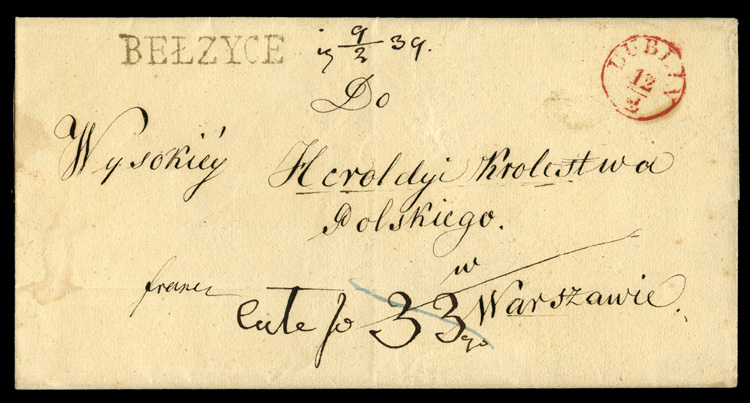 BEŁZYCE
9/2 39.
LUBLIN
12/2
Do
Wysokiéy Heroldyi Krolestwa
Polskiego.
w
Warszawie.
franco
33